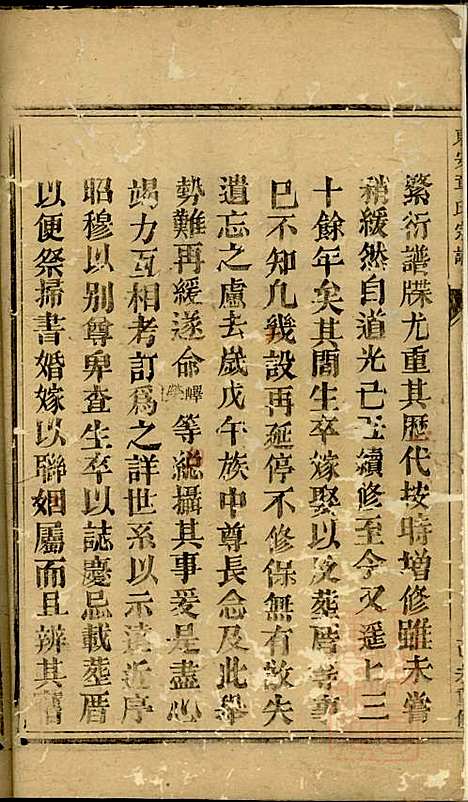 繁衍譜牒尤重其歷代按時增修雖未嘗
稍緩然自道光己丑續修至今又遥上三
十餘年矣其間生卒嫁娶以及葬厝等事
已不知凡幾設再延停不修保無有放失
遺忘之慮去歲戊午族中尊長念及此舉
勢難再緩遂命嶧等總攝其事爰是盡心
竭力互相考訂爲之詳世系以示遠近序
昭穆以別尊卑查生卒以誌慶忌載葬厝
以便祭掃書婚嫁以聯姻屬而且辨其舊